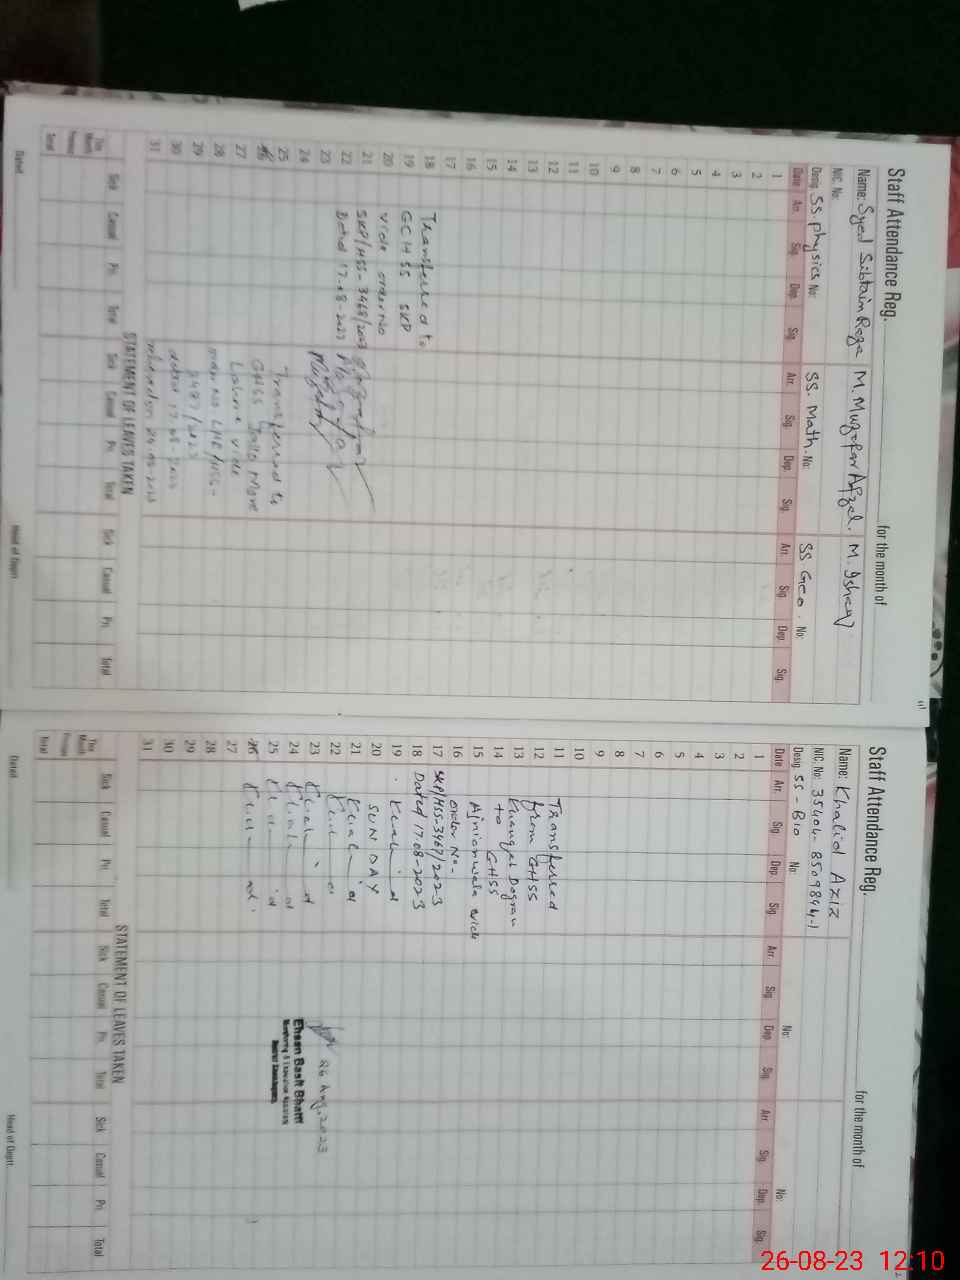 Staff Attendance Reg.
for the month of
Name: Syed Sibtain Raza M. Muzaffar Afzal. M. Ishaq
NIC. No:
Desig. SS. Physics No: SS. Math. No: SS Geo. No:
Date Arr. Sig. Dep. Sig. Arr. Sig. Dep. Sig. Arr. Sig. Dep. Sig.
1
2
3
4
5
6
7
8
9
10
11
12
13
14
15
16
17
18 Transferred to
19 GCHSS SKP
20 vide order No
21 SKP/HSS-3468/2023
22 Dated 17-08-2023
23
24
25 Transferred to
26 GHSS Jallo More
27 Lahore vide
28 order No LHR/HSS-
29 /2023
30 dated 17-08-2023
31 relieved on
STATEMENT OF LEAVES TAKEN
Sick Casual Pri. Total Sick Casual Pri. Total Sick Casual Pri. Total
This Month
Previous
Total
Dated Head of Deptt
Staff Attendance Reg.
for the month of
Name: Khalid Aziz
NIC. No: 35404-8509844-1
Desig. SS-Bio No: No: No:
Date Arr. Sig. Dep. Sig. Arr. Sig. Dep. Sig. Arr. Sig. Dep. Sig.
1
2
3
4
5
6
7
8
9
10
11 Transferred
12 from GHSS
13 Dogran
14 to GHSS
15 Ajnianwala vide
16 order No-
17 SKP/HSS-3467/2023
18 Dated 17-08-2023
19
20 SUNDAY
21
22
23
24
25
26
27
28
29
30
31
26 Aug, 2023
Ehsan Basit Bhatti
Monitoring & Evaluation Assistant
STATEMENT OF LEAVES TAKEN
Sick Casual Pri. Total Sick Casual Pri. Total Sick Casual Pri. Total
This Month
Previous
Total
Dated Head of Deptt:
26-08-23 12:10